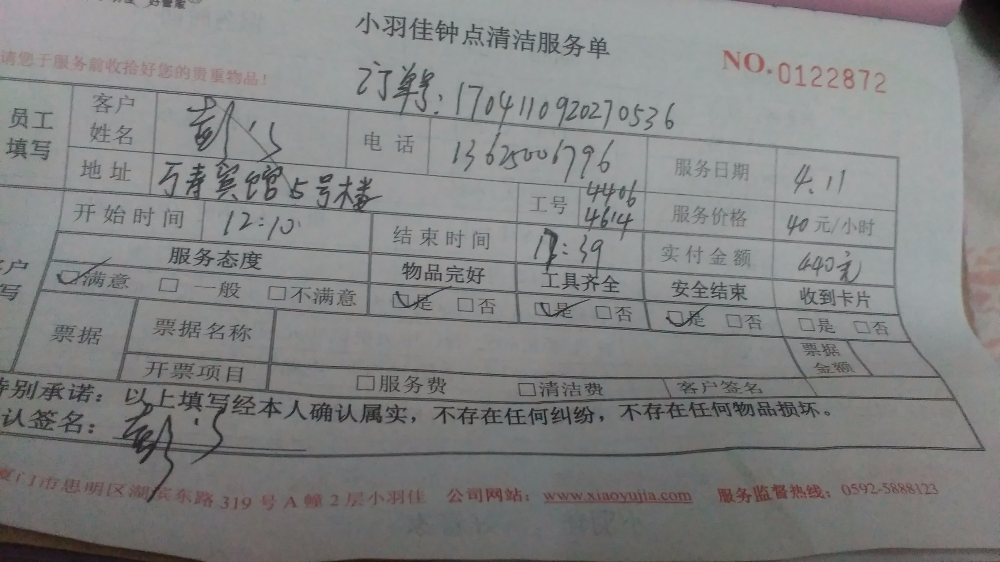 小羽佳钟点清洁服务单
NO.0122872
请您于服务前收拾好您的贵重物品！
订单号：1704110920270536
员工填写 客户姓名 电话 13625006796 服务日期 4.11
地址 万寿宾馆5号楼 工号 4406 4614 服务价格 40元/小时
开始时间 12:10 结束时间 :39 实付金额 440元
服务态度 物品完好 工具齐全 安全结束 收到卡片
☑满意 □一般 □不满意 ☑是 □否 ☑是 □否 ☑是 □否 □是 □否
票据 票据名称 票据金额
开票项目 □服务费 □清洁费 客户签名
特别承诺：以上填写经本人确认属实，不存在任何纠纷，不存在任何物品损坏。
认签名：
厦门市思明区湖滨东路319号A幢2层小羽佳 公司网站：www.xiaoyujia.com 服务监督热线：0592-5888123